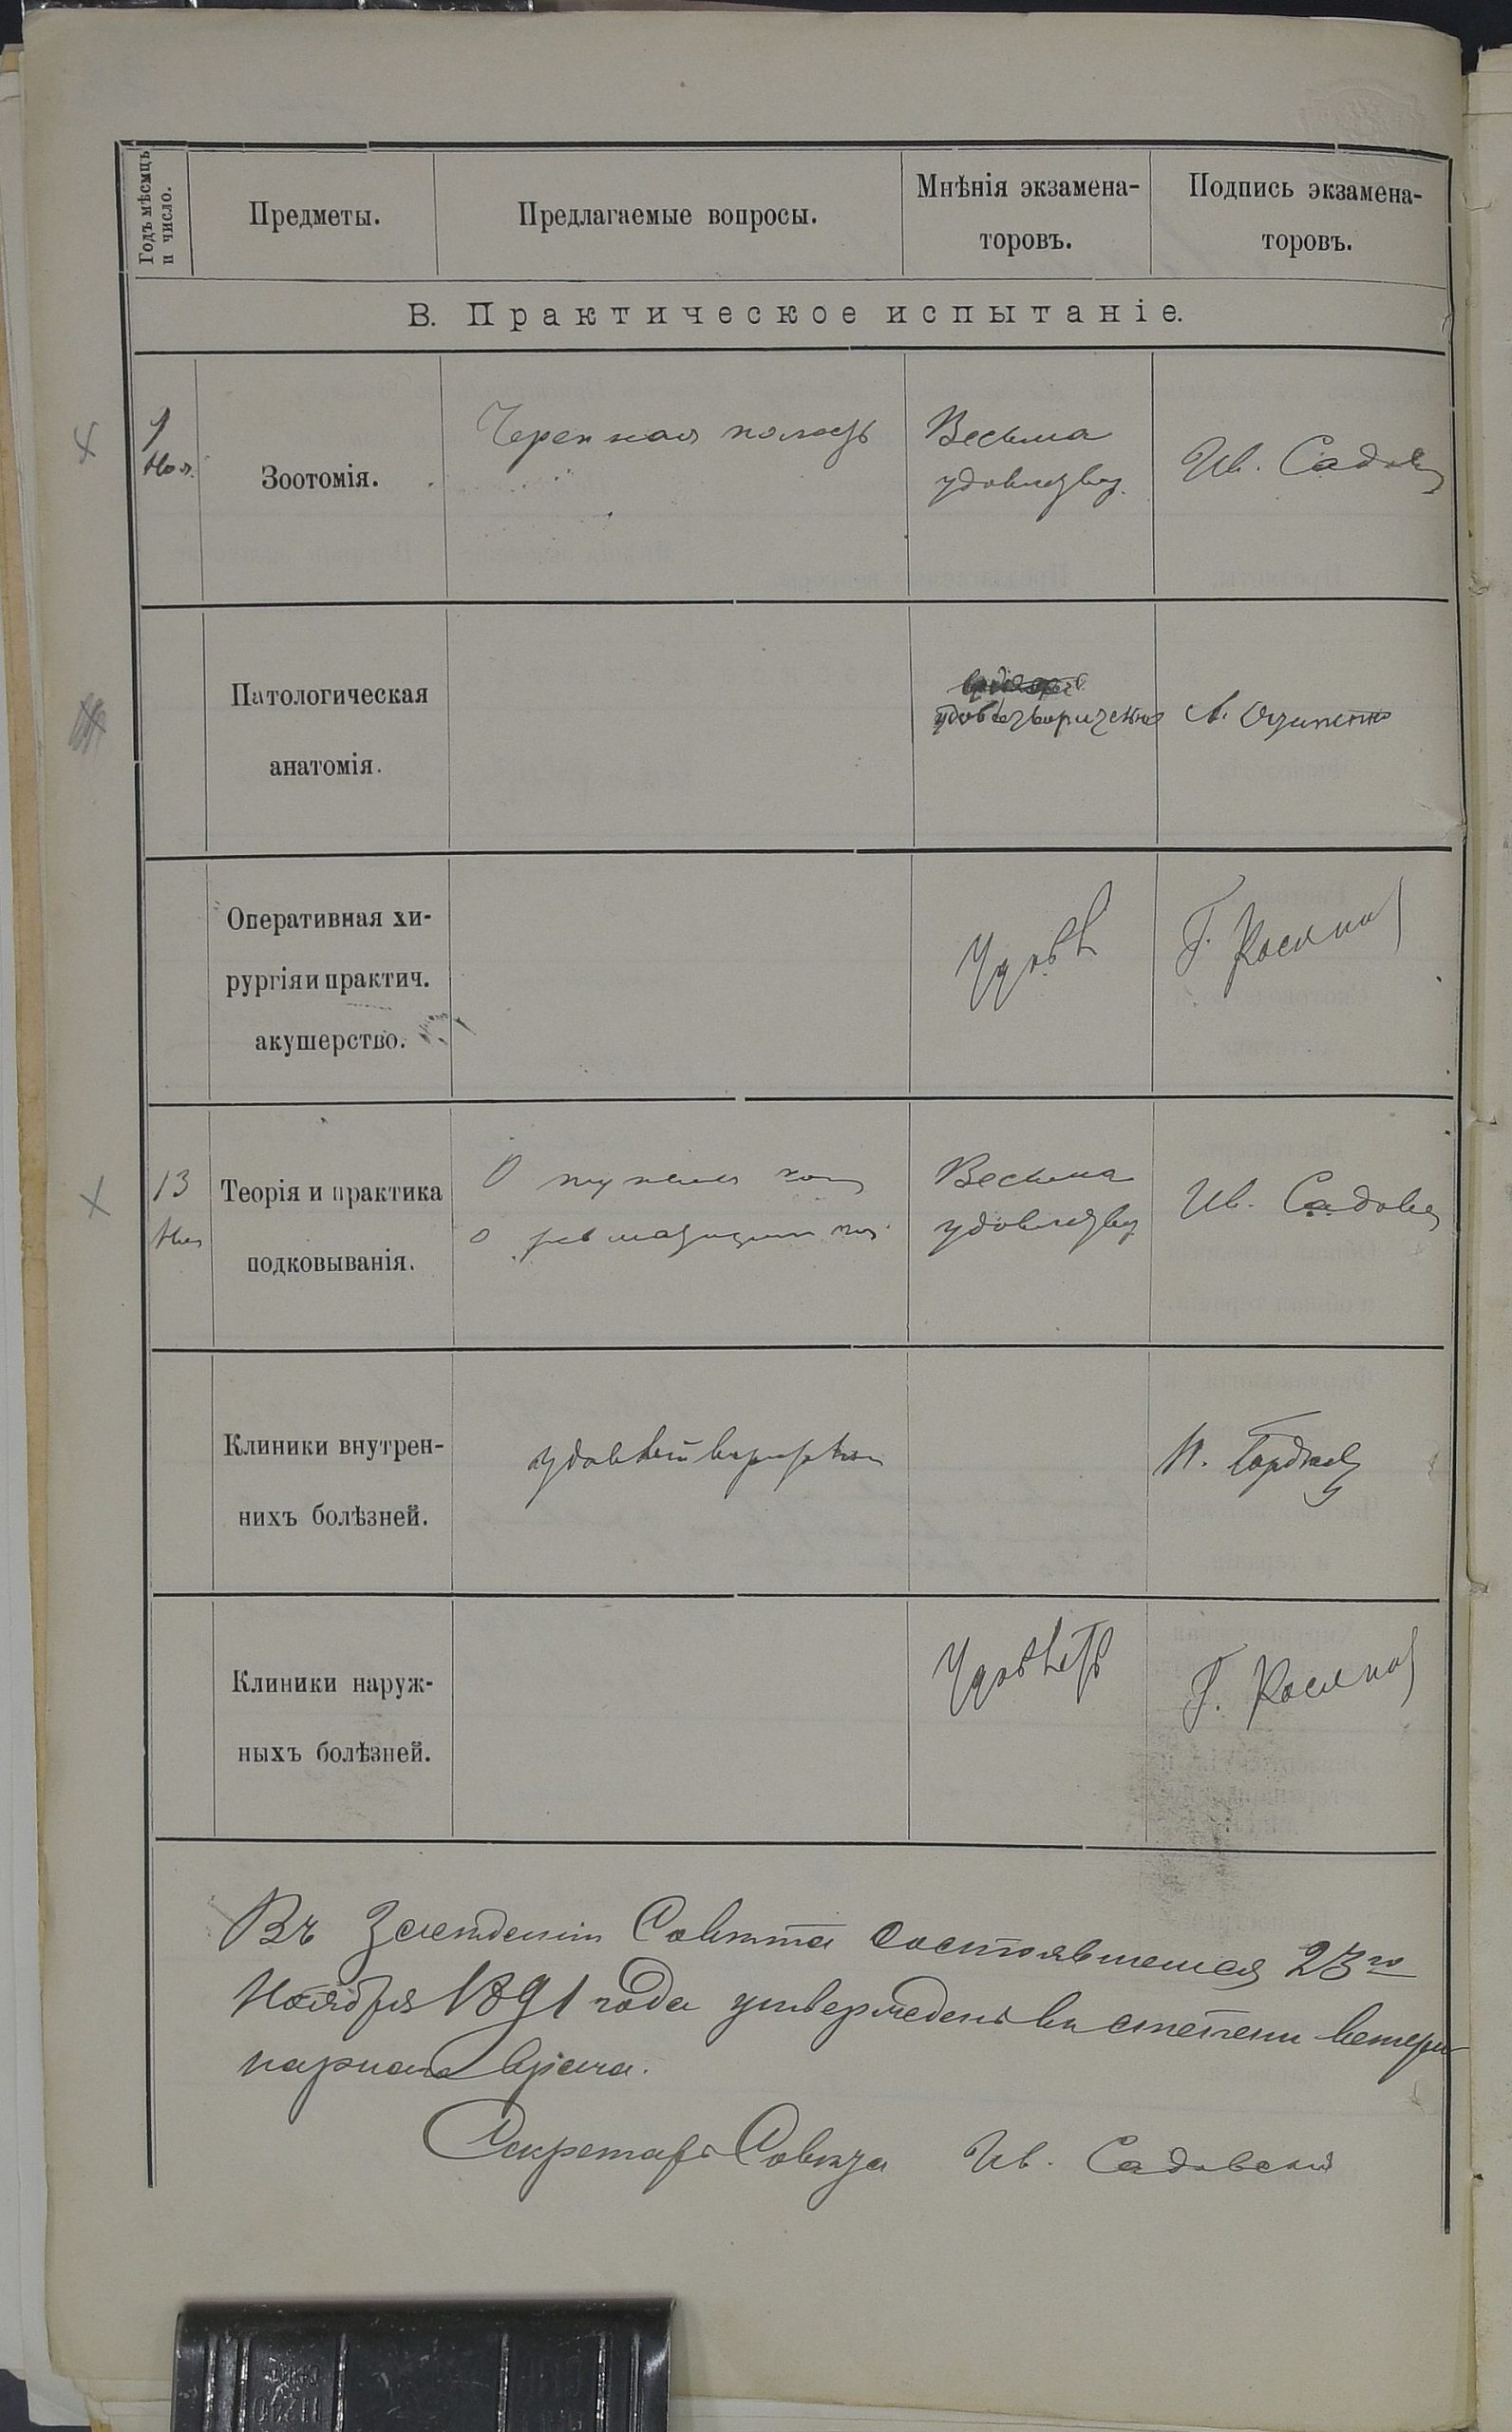 Годъ мѣсяцъ
и число.
Предметы.
Предлагаемые вопросы.
Мнѣнія экзамена-
торовъ.
Подпись экзамена-
торовъ.
В. Практическое испытаніе.
9
Ноя.
Зоотомія.
Черепная полость
Весьма
удовлетвор.
Ив. Садовс
Патологическая
анатомія.
удовлетворительно
Оперативная хи-
рургія и практич.
акушерство.
Удовл
Г.
13
Ноя
Теорія и практика
подковыванія.
О
о
Весьма
удовлетвор
Ив. Садовс
Клиники внутрен-
нихъ болѣзней.
удовлетворительно
Клиники наруж-
ныхъ болѣзней.
Удовлетв
Г.
Въ Заседаніи Совѣта состоявшемся 23го
Ноября 1891 года утвержденъ въ степени ветери
нарнаго врача.
Секретарь Совѣта Ив. Садовскій